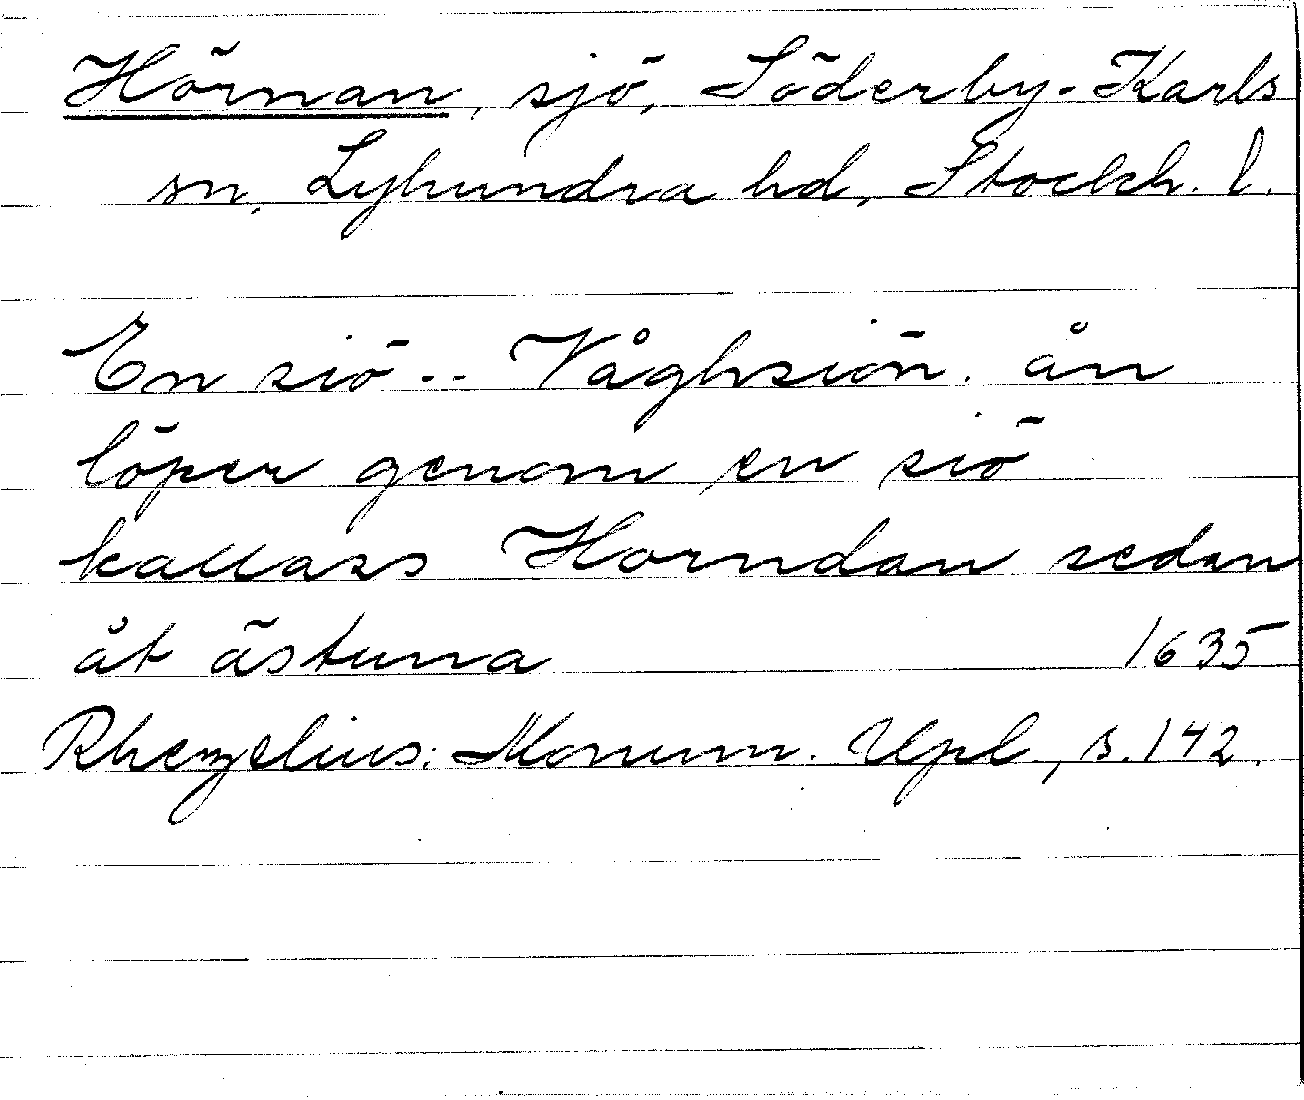 Hörnan, sjö, Söderby-Karls
sn, Lyhundra hd, Stockh. l.
En siö -- Våghsiön. ån
löper genom en siö
kallass Horndan sedan
åt ästuna 1635
Rhezelius: Monum. Upl., s. 142.